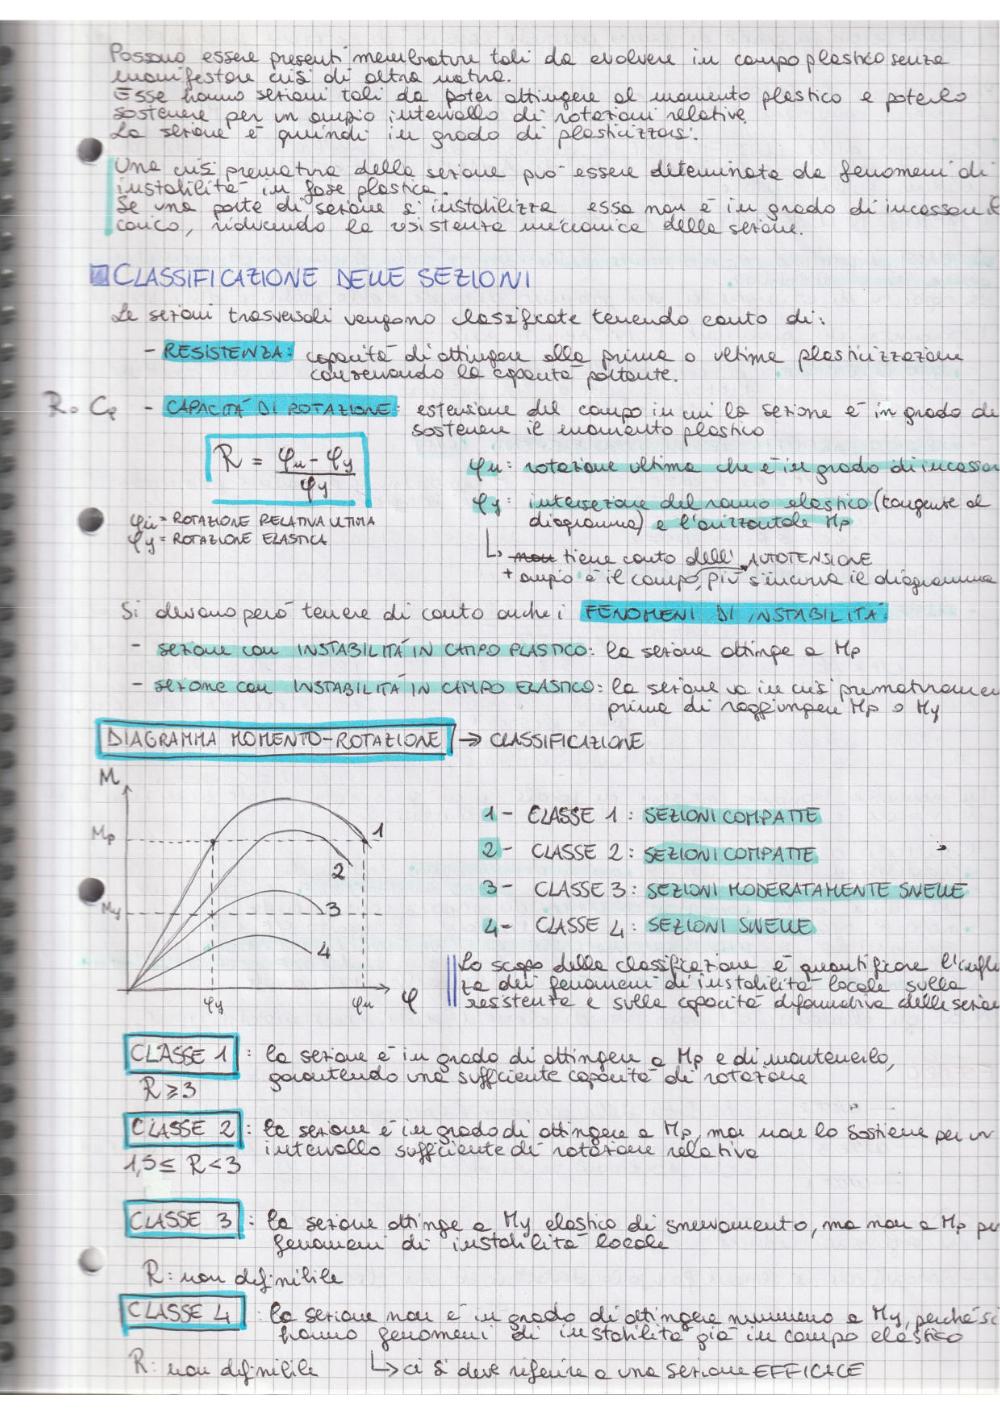 Possono essere presenti membrature tali da evolvere in campo plastico senza
manifestare crisi di altra natura.
Esse hanno sezioni tali da poter attingere al momento plastico e poterlo
sostenere per un ampio intervallo di rotazioni relative
La sezione è quindi in grado di plasticizzarsi.
Una crisi prematura della sezione può essere determinata da fenomeni di
instabilità in fase plastica.
Se una parte di sezione si instabilizza essa non è in grado di incassare il
carico, riducendo la resistenza meccanica della sezione.
CLASSIFICAZIONE DELLE SEZIONI
Le sezioni trasversali vengono classificate tenendo conto di:
- RESISTENZA: capacità di attingere alla prima o ultima plasticizzazione
conservando la capacità portante.
R. Cq - CAPACITÀ DI ROTAZIONE: estensione del campo in cui la sezione è in grado di
sostenere il momento plastico
R = φu - φy / φy
φu: rotazione ultima che è in grado di incassar
φy: intersezione del ramo elastico (tangente al
diagramma) e l'orizzontale Mp
φu = ROTAZIONE RELATIVA ULTIMA
φy = ROTAZIONE ELASTICA
↳ non tiene conto dell' AUTOTENSIONE
+ ampio è il campo, più s'incurva il diagramma
Si devono però tenere di conto anche i FENOMENI DI INSTABILITÀ:
- sezione con INSTABILITÀ IN CAMPO PLASTICO: la sezione attinge a Mp
- sezione con INSTABILITÀ IN CAMPO ELASTICO: la sezione va in crisi prematuramen
prima di raggiungere Mp o My
DIAGRAMMA MOMENTO-ROTAZIONE → CLASSIFICAZIONE
M
Mp
My
1
2
3
4
φy φu φ
1- CLASSE 1: SEZIONI COMPATTE
2- CLASSE 2: SEZIONI COMPATTE
3- CLASSE 3: SEZIONI MODERATAMENTE SNELLE
4- CLASSE 4: SEZIONI SNELLE
Lo scopo della classificazione è quantificare l'influe
za dei fenomeni di instabilità locale sulla
resistenza e sulla capacità deformativa delle sezioni
CLASSE 1: la sezione è in grado di attingere a Mp e di mantenerlo,
garantendo una sufficiente capacità di rotazione
R ≥ 3
CLASSE 2: la sezione è in grado di attingere a Mp, ma non lo sostiene per un
intervallo sufficiente di rotazione relativa
1,5 ≤ R < 3
CLASSE 3: la sezione attinge a My elastico di snervamento, ma non a Mp per
fenomeni di instabilità locale
R: non definibile
CLASSE 4: la sezione non è in grado di attingere nemmeno a My, perché si
hanno fenomeni di instabilità già in campo elastico
R: non definibile ↳ ci si deve riferire a una sezione EFFICACE